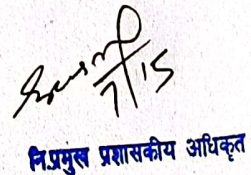 7/15
नि.प्रमुख प्रशासकीय अधिकृत